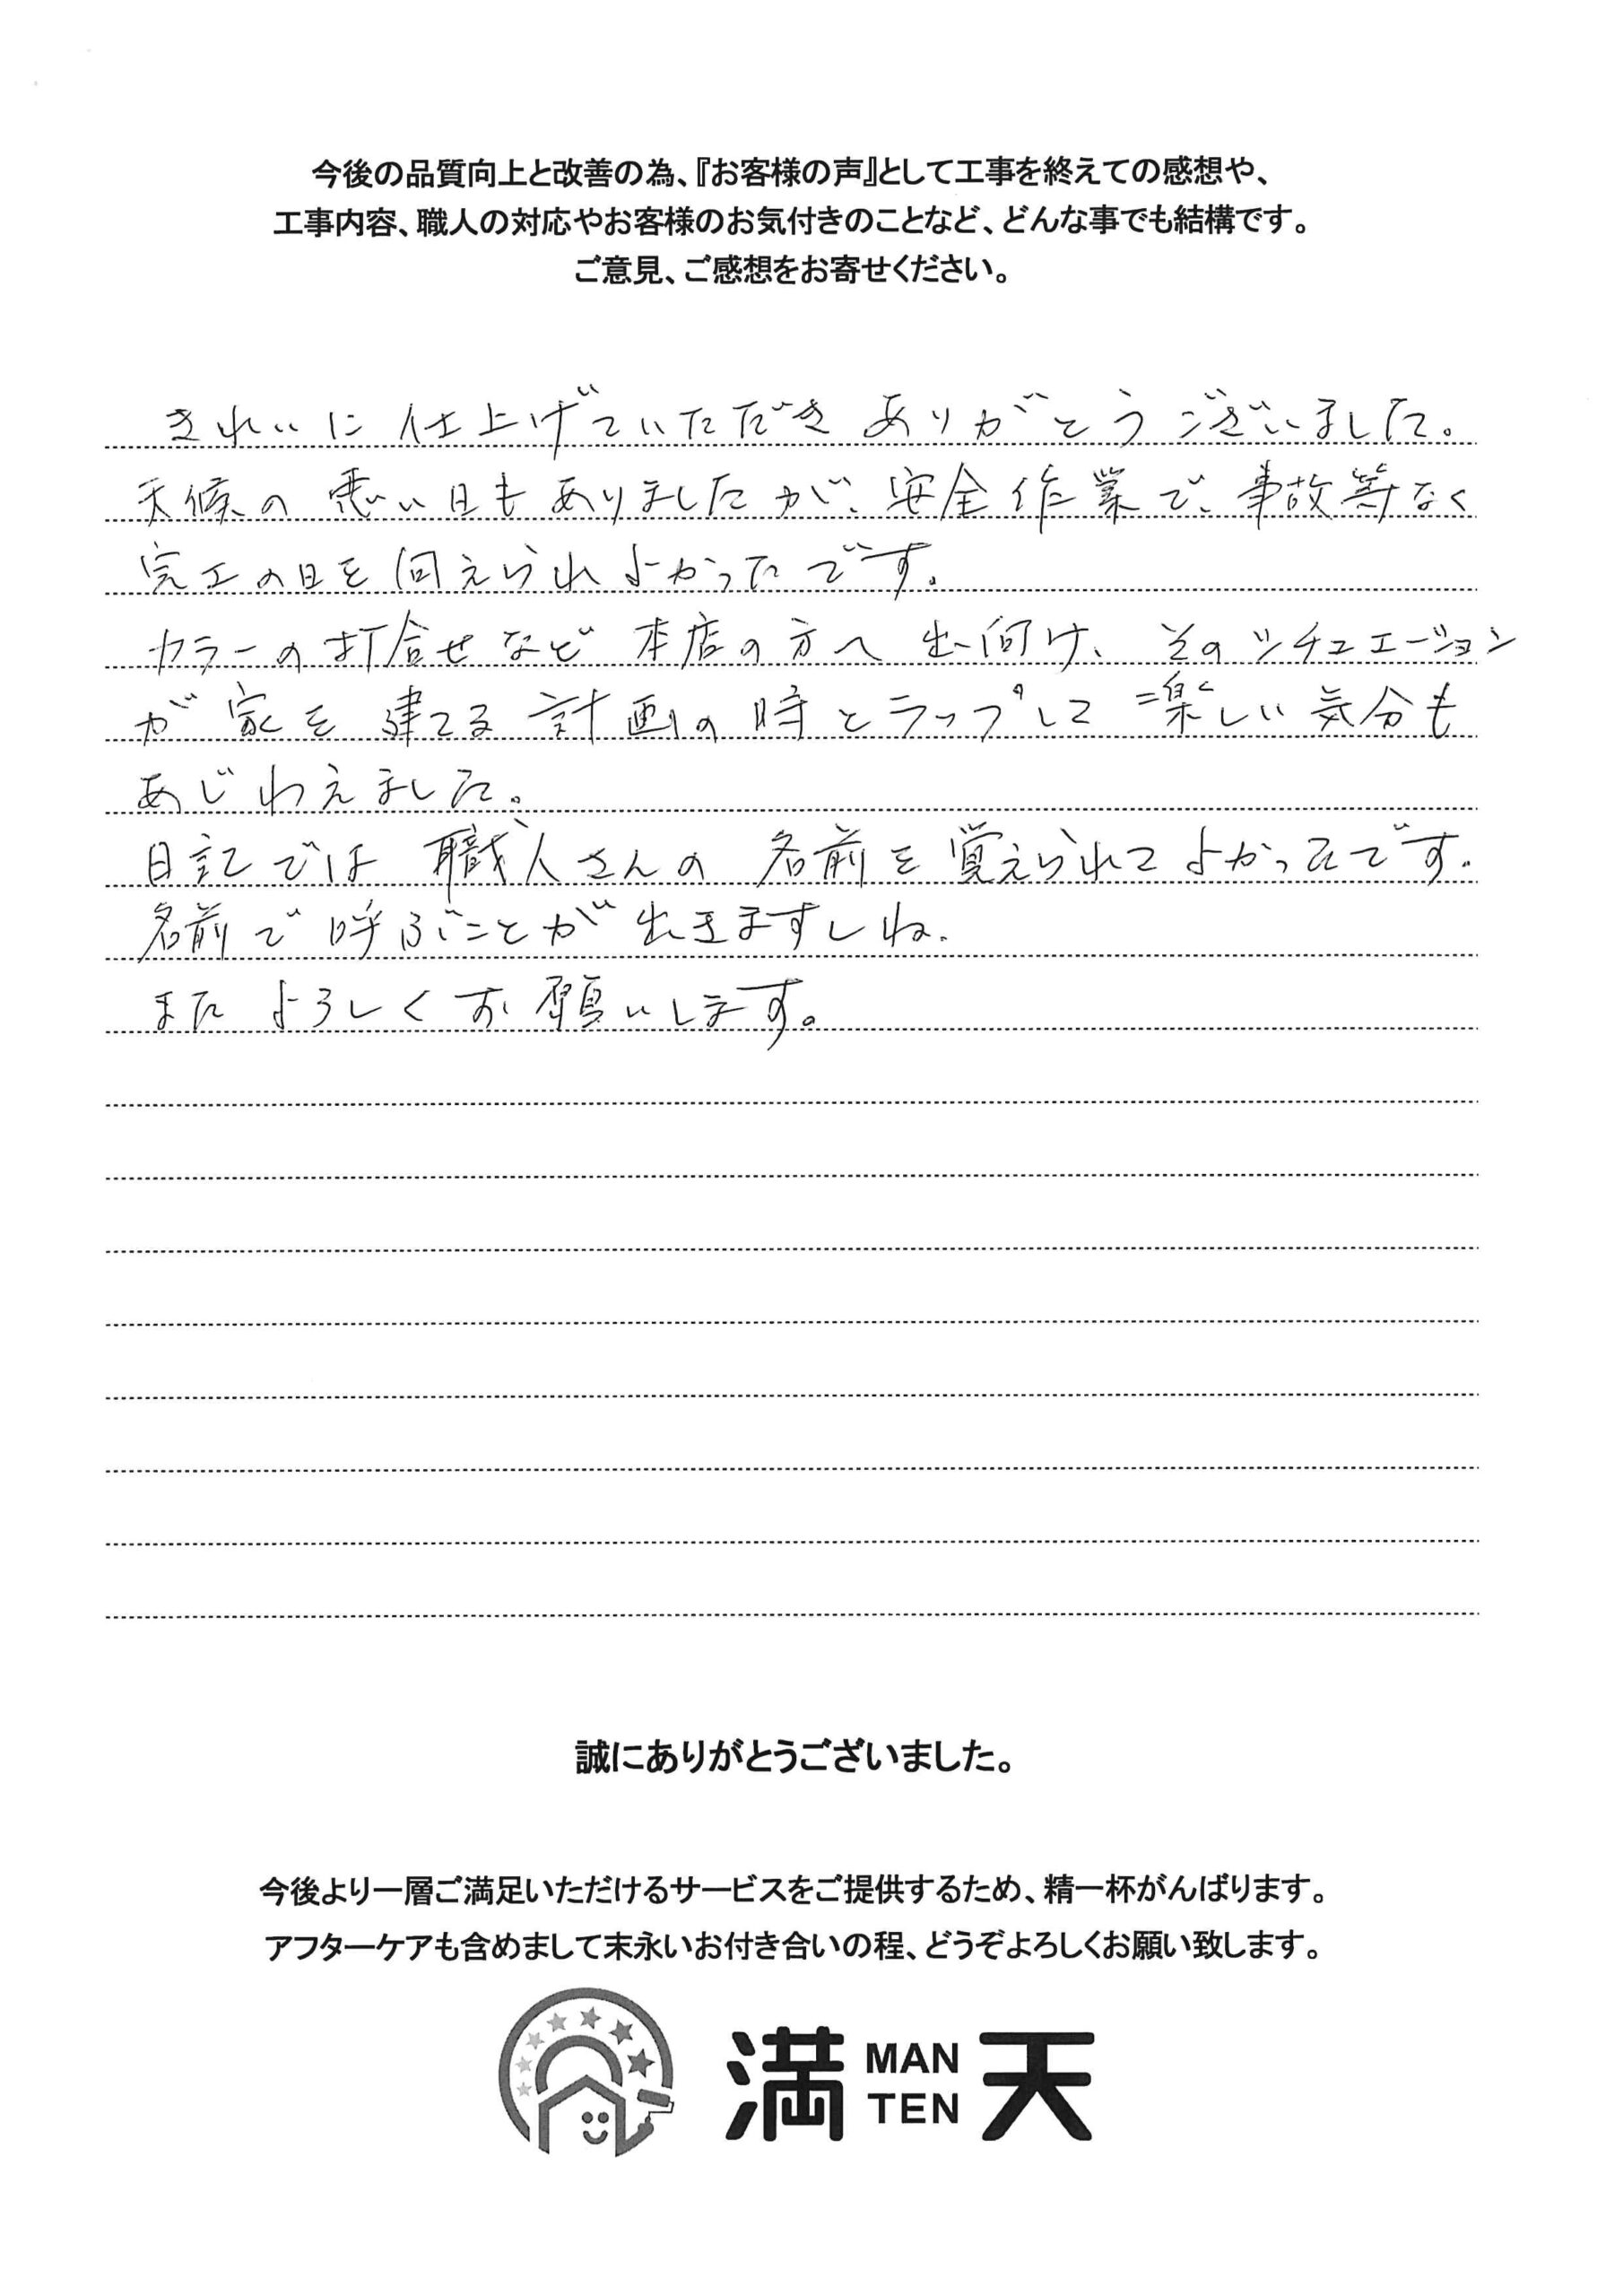 今後の品質向上と改善の為、『お客様の声』として工事を終えての感想や、
工事内容、職人の対応やお客様のお気付きのことなど、どんな事でも結構です。
ご意見、ご感想をお寄せください。
きれいに仕上げていただきありがとうございました。
天候の悪い日もありましたが、安全作業で、事故等なく
完工の日を向えられよかったです。
カラーの打合せなど本店の方へ出向け、そのシチュエーション
が家を建てる計画の時とラップして楽しい気分も
あじわえました。
日記では職人さんの名前を覚えられてよかったです。
名前で呼ぶことが出きますしね.
またよろしくお願いします。
誠にありがとうございました。
今後より一層ご満足いただけるサービスをご提供するため、精一杯がんばります。
アフターケアも含めまして末永いお付き合いの程、どうぞよろしくお願い致します。
満 MAN TEN 天